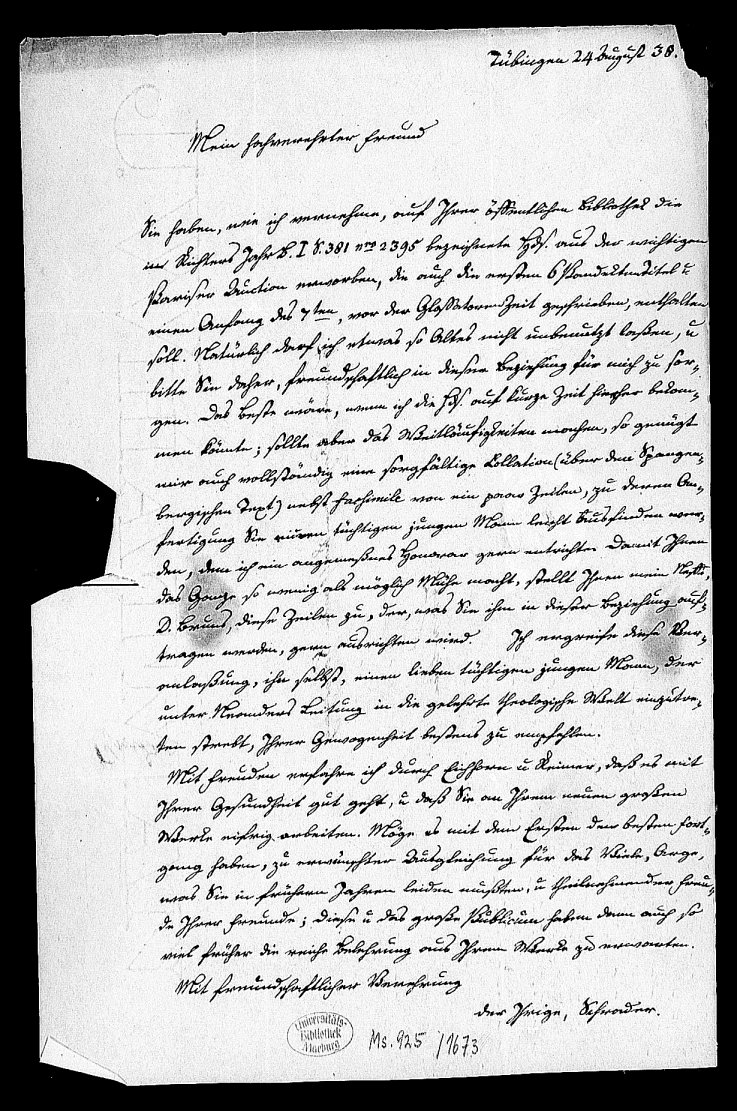 Tübingen 24 August 38.
Mein hochverehrter Freund
Sie haben, wie ich vernehme, auf Ihrer öffentlichen Bibliothek die
in Richters Jahrb. I S. 381 nro 2395 bezeichnete Hds. aus der wichtigen
Pariser Auction erworben, die auch die ersten 6 Pandectentitel u
einen Anfang des 7ten, vor der Glossatorenzeit geschrieben, enthalten
soll. Natürlich darf ich etwas so Altes nicht unbenutzt laßen, u
bitte Sie daher, freundschaftlich in dieser Beziehung für mich zu sor-
gen. Das Beste wäre, wenn ich die Hds. auf kurze Zeit hierher bekom-
men könnte; sollte aber das Weitläufigkeiten machen, so genügt
mir auch vollständig eine sorgfältige Collation (über dem Spangen-
bergischen Text) nebst Facsimile von ein paar Zeilen, zu deren An-
fertigung Sie einen tüchtigen jungen Mann leicht ausfinden wer-
den, dem ich ein angemeßnes Honorar gern entrichte. Damit Ihnen
das Ganze so wenig als möglich Mühe macht, stellt Ihnen mein Neffe,
D. Bruns, diese Zeilen zu, der, was Sie ihm in dieser Beziehung auf-
tragen werden, gern ausrichten wird. Ich ergreife diese Ver-
anlaßung, ihn selbst, einen lieben tüchtigen jungen Mann, der
unter Neanders Leitung in die gelehrte theologische Welt einzutre-
ten strebt, Ihrer Gewogenheit bestens zu empfehlen.
Mit Freuden erfahre ich durch Eichhorn u Keimer, daß es mit
Ihrer Gesundheit gut geht, u daß Sie an Ihrem neuen großen
Werke eifrig arbeiten. Möge es mit dem Ersten den besten Fort-
gang haben, zu erwünschter Ausgleichung für das Viele, Arge,
was Sie in frühern Jahren leiden mußten, u theilnehmender Freu-
de Ihrer Freunde; diese u das große Publicum haben dann auch so
viel früher die reiche Belehrung aus Ihrem Werke zu erwarten.
Mit freundschaftlicher Verehrung
der Ihrige, Schrader.
Universitäts-
Bibliothek
Marburg
Ms. 925 /1673